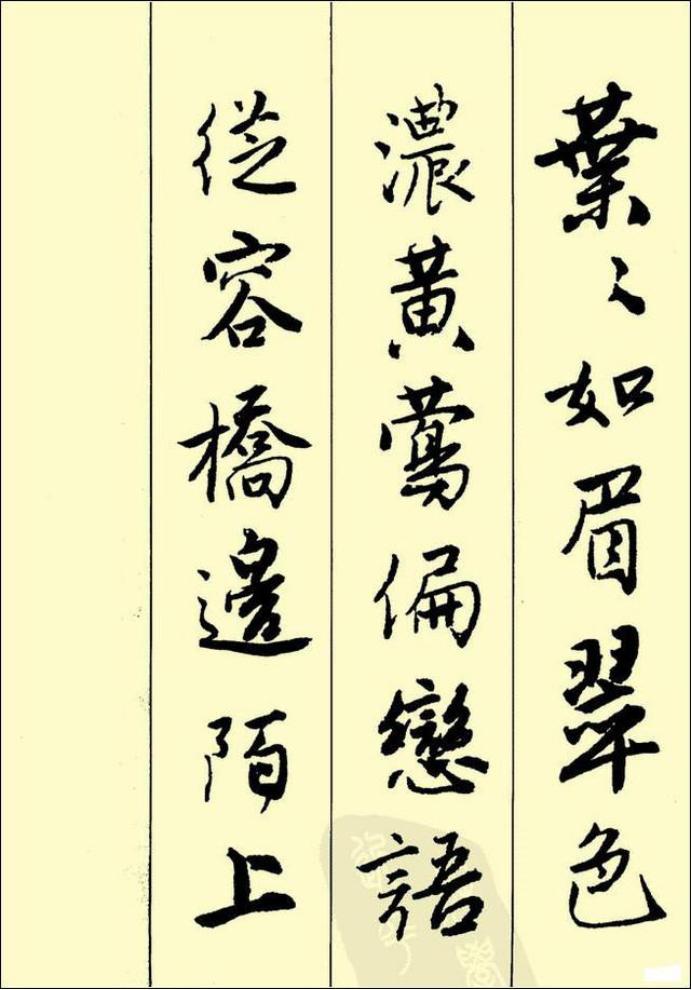 葉〻如眉翠色
濃黃鶯偏戀語
從容橋邊陌上